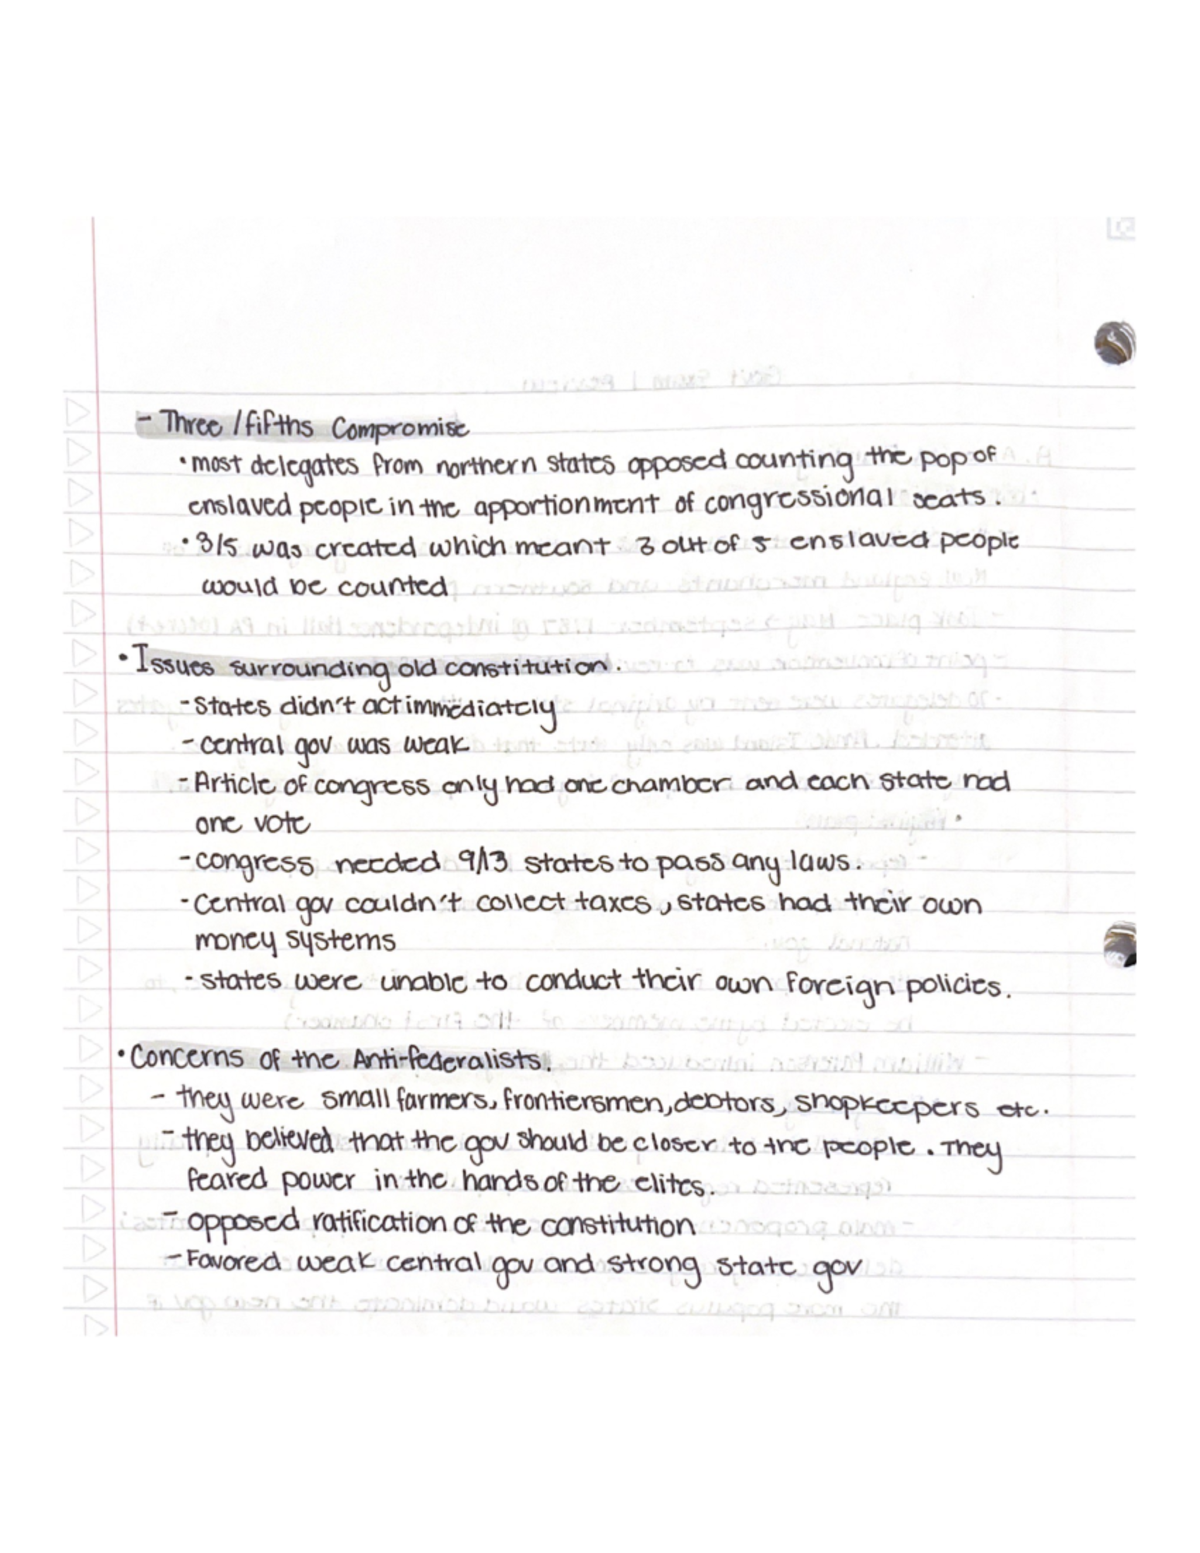 - Three / fifths Compromise
• most delegates from northern states opposed counting the pop of
enslaved people in the apportionment of congressional seats.
• 3/5 was created which meant 3 out of 5 enslaved people
would be counted
• Issues surrounding old constitution.
- States didn't act immediately
- central gov was weak
- Article of congress only had one chamber and each state had
one vote
- congress needed 9/13 states to pass any laws.
- Central gov couldn't collect taxes, states had their own
money systems
- states were unable to conduct their own foreign policies.
• Concerns of the Anti-federalists.
- they were small farmers, frontiersmen, debtors, shopkeepers etc.
- they believed that the gov should be closer to the people. They
feared power in the hands of the elites.
- opposed ratification of the constitution
- Favored weak central gov and strong state gov